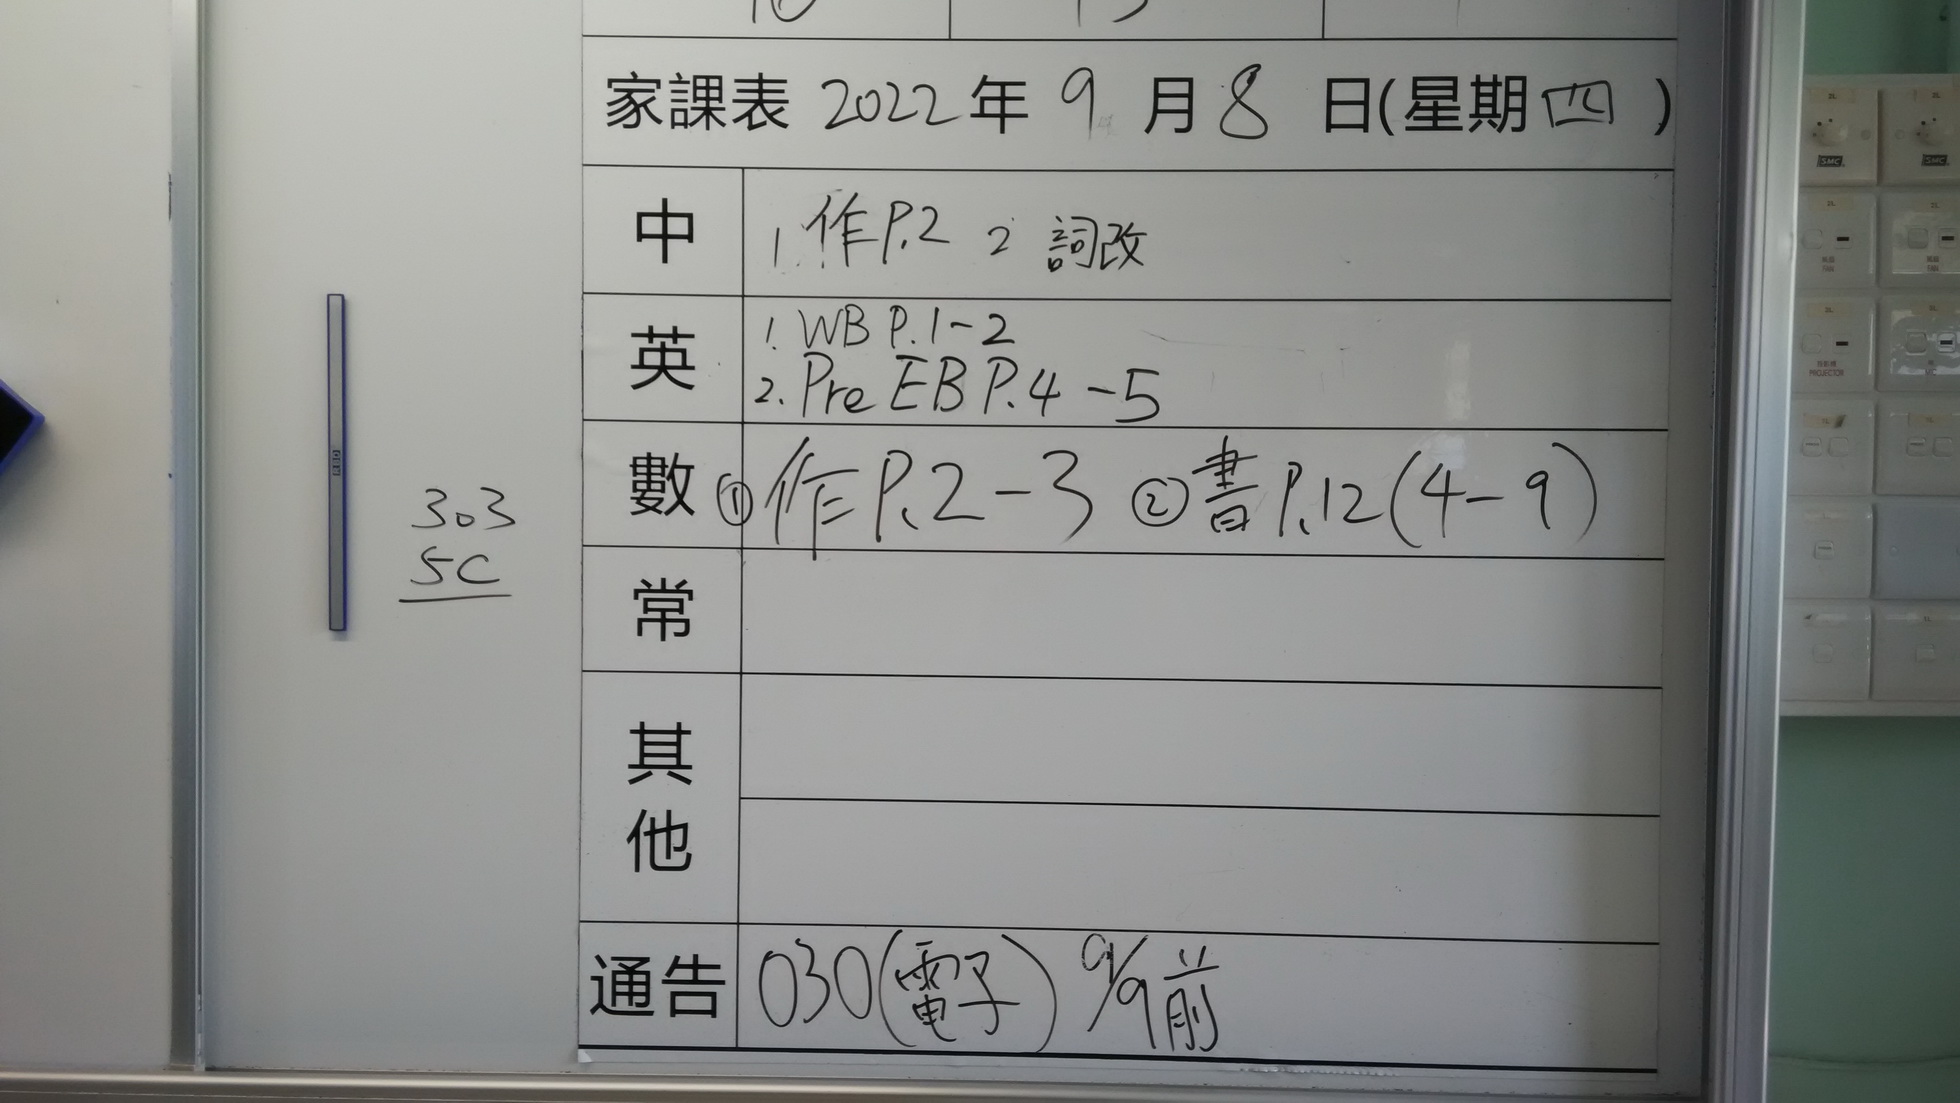 家課表 2022年 9月8日(星期四)
中 1. 作P.2 2 詞改
英 1. WB P.1-2
2. Pre EB P.4-5
數 ① 作P.2-3 ② 書P.12(4-9)
常
其他
通告 030(電子) 9/9前
303
5C
SMC
SMC
FAN
FAN
PROJECTOR